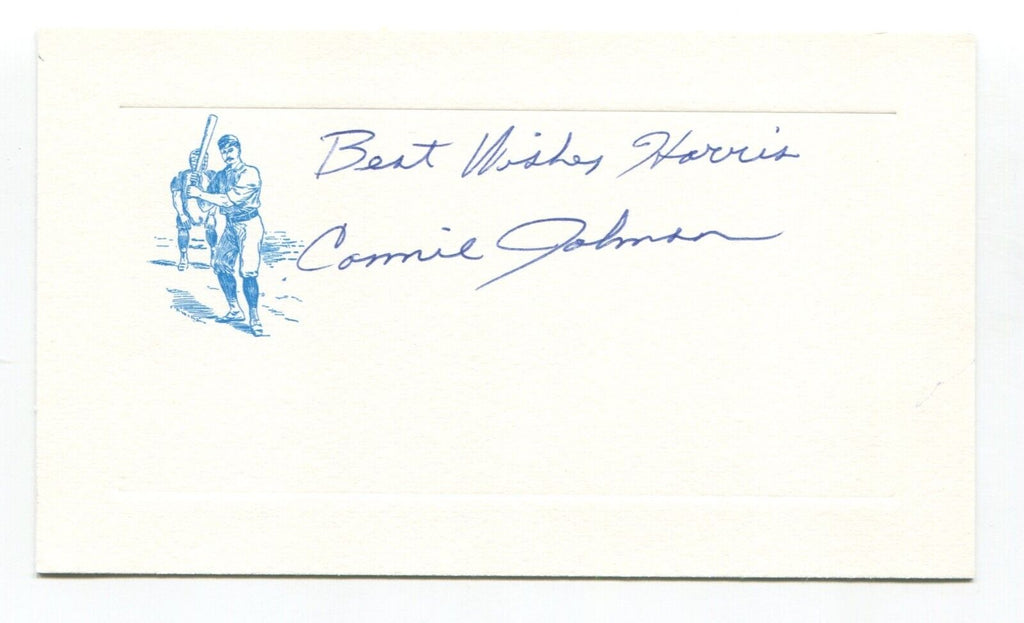 Best Wishes Harris
Connie Johnson